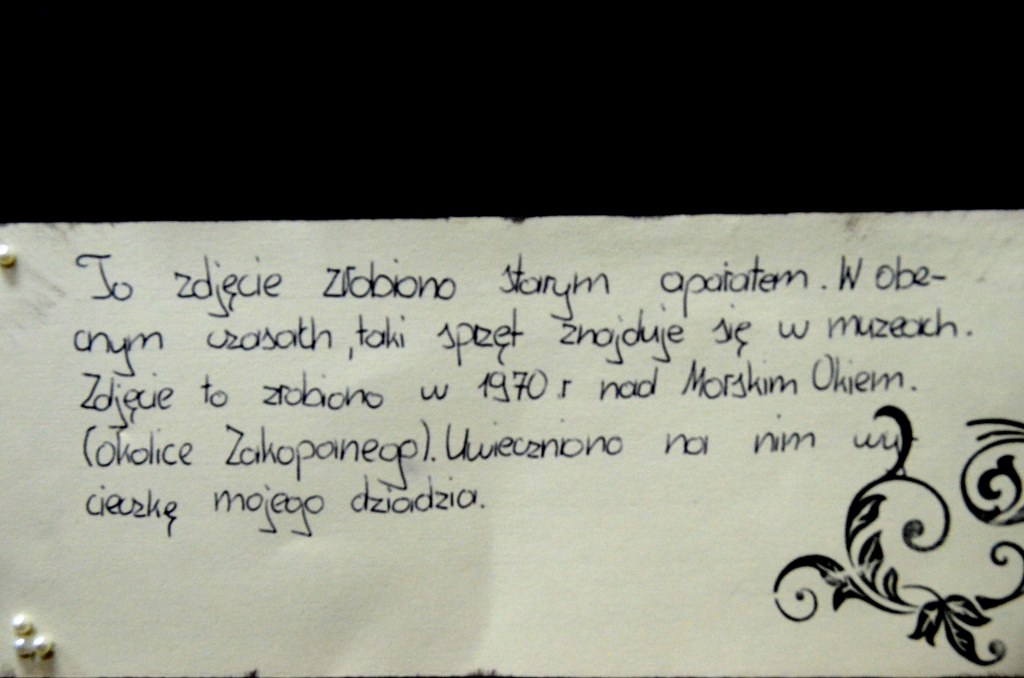 To zdjęcie zrobiono starym aparatem. W obe-
cnym czasach, taki sprzęt znajduje się w muzeach.
Zdjęcie to zrobiono w 1970 r nad Morskim Okiem.
(okolice Zakopanego). Uwieczniono na nim wy-
cieczkę mojego dziadzia.